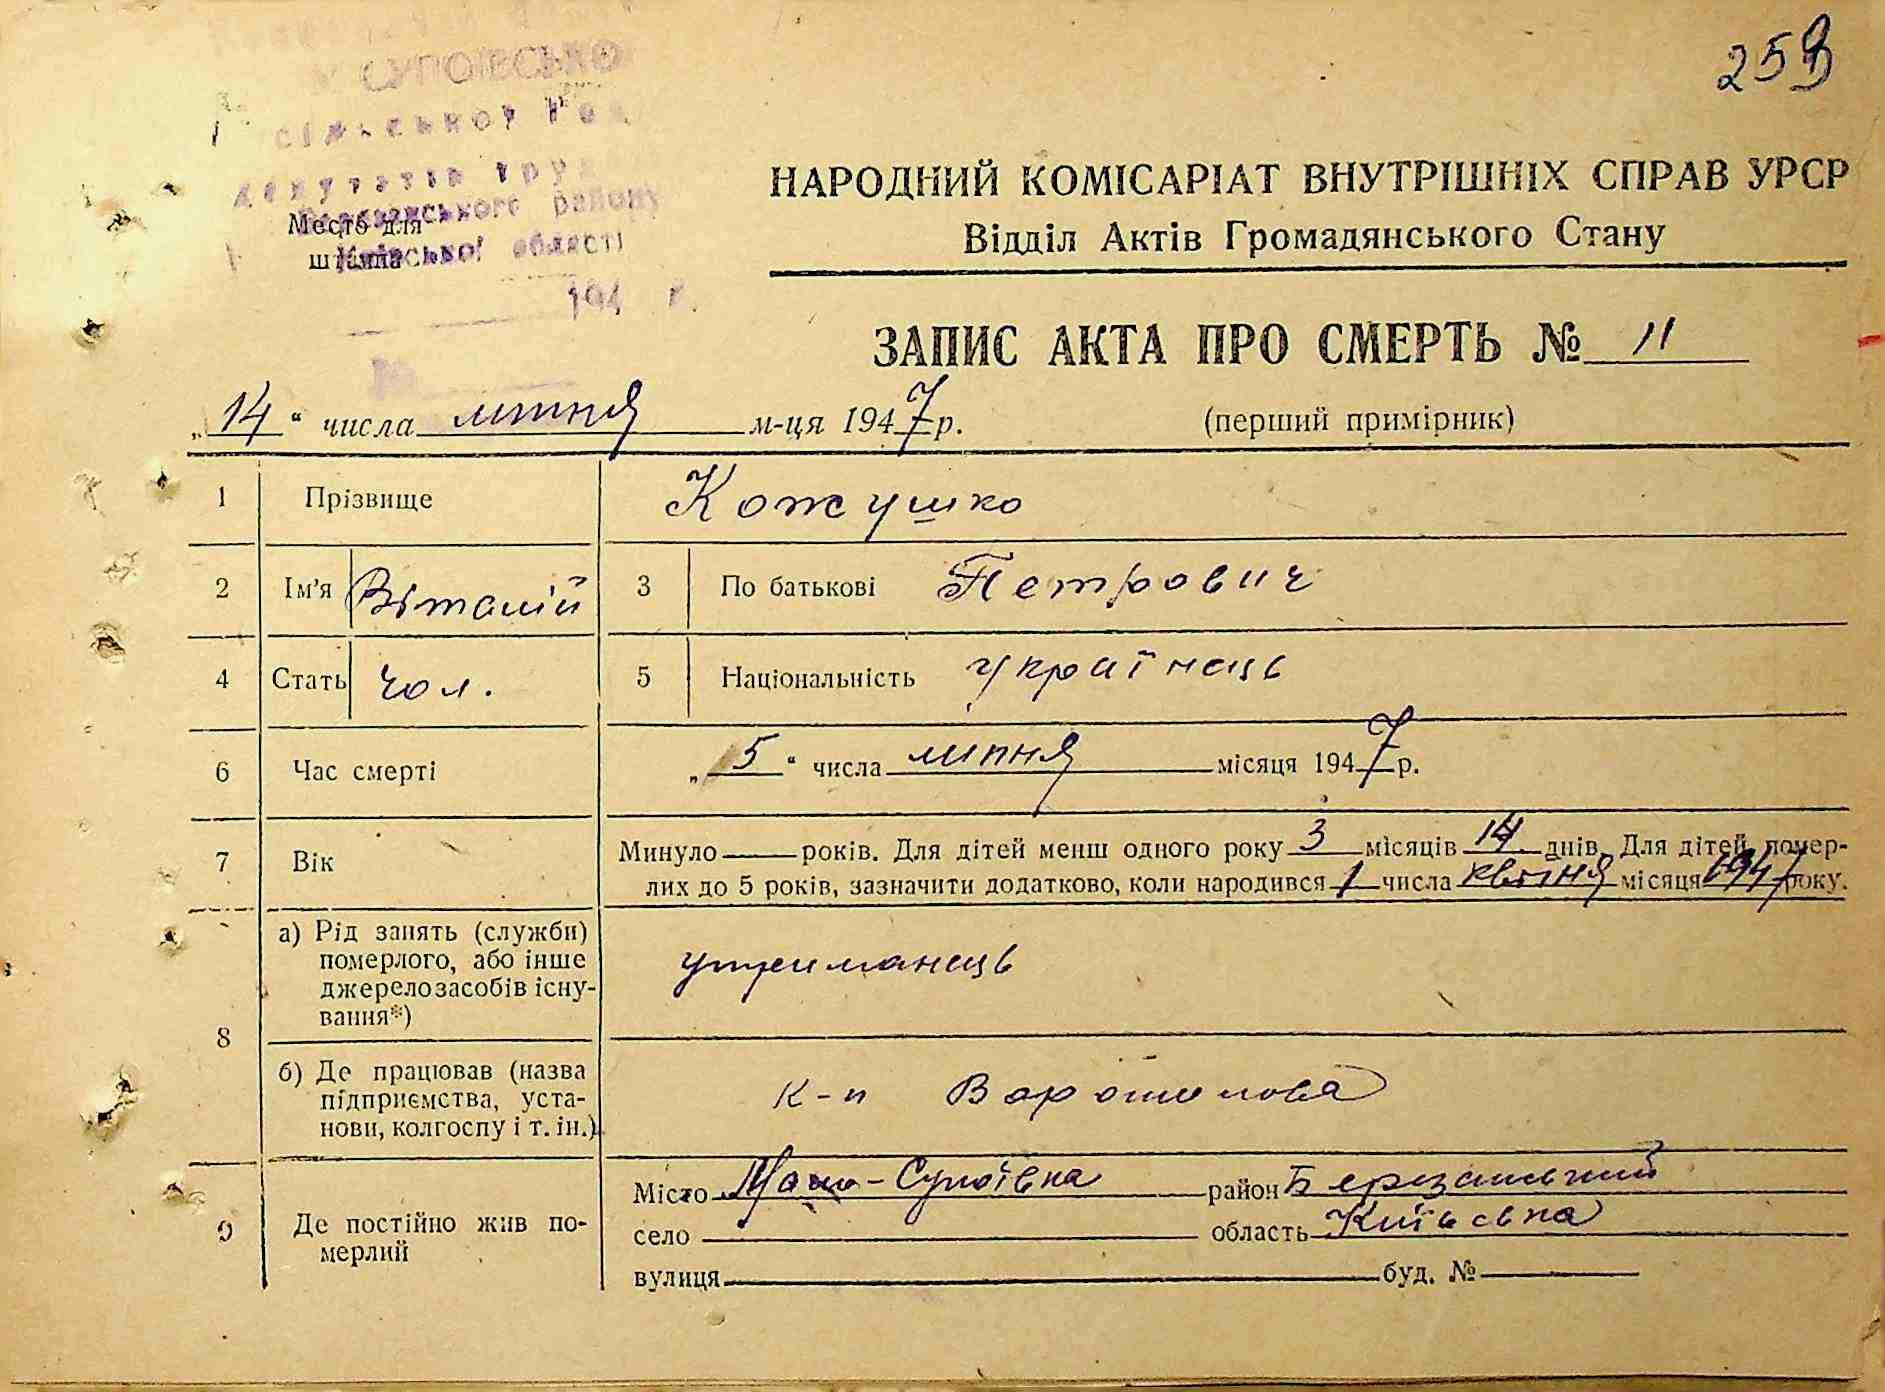 259
СУПОЇВСЬКО
сільської Рад
депутатів труд
Березанського району
Київської області
194 р.
№
Место для
штампа
НАРОДНИЙ КОМІСАРІАТ ВНУТРІШНІХ СПРАВ УРСР
Відділ Актів Громадянського Стану
ЗАПИС АКТА ПРО СМЕРТЬ № 11
„14“ числа липня м-ця 1947 р. (перший примірник)
1 Прізвище Кожушко
2 Ім'я Віталій 3 По батькові Петрович
4 Стать чол. 5 Національність українець
6 Час смерті „5“ числа липня місяця 1947 р.
7 Вік Минуло — років. Для дітей менш одного року 3 місяців 14 днів. Для дітей помер-
лих до 5 років, зазначити додатково, коли народився 1 числа квітня місяця 1947 року.
8 а) Рід занять (служби)
померлого, або інше
джерело засобів існу-
вання*)
утриманець
б) Де працював (назва
підприємства, уста-
нови, колгоспу і т. ін.)
к-п Ворошилова
9 Де постійно жив по-
мерлий
Місто Мало-Супоївка район Березанський
село область Київська
вулиця буд. №